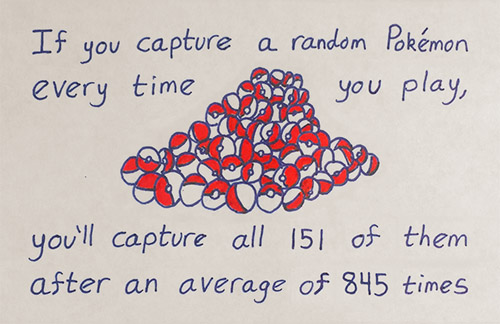 If you capture a random Pokémon
every time you play,
you'll capture all 151 of them
after an average of 845 times